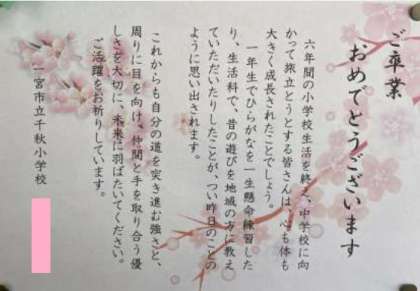 ご卒業
おめでとうございます
六年間の小学校生活を終え、中学校に向
かって旅立とうとする皆さんは、心も体も
大きく成長されたことでしょう。
一年生でひらがなを一生懸命練習した
り、生活科で、昔の遊びを地域の方に教え
ていただいたりしたことが、つい昨日のことの
ように思い出されます。
これからも自分の道を突き進む強さと、
周りに目を向け、仲間と手を取り合う優
しさを大切に、未来に羽ばたいてください。
ご活躍をお祈りしています。
一宮市立千秋小学校